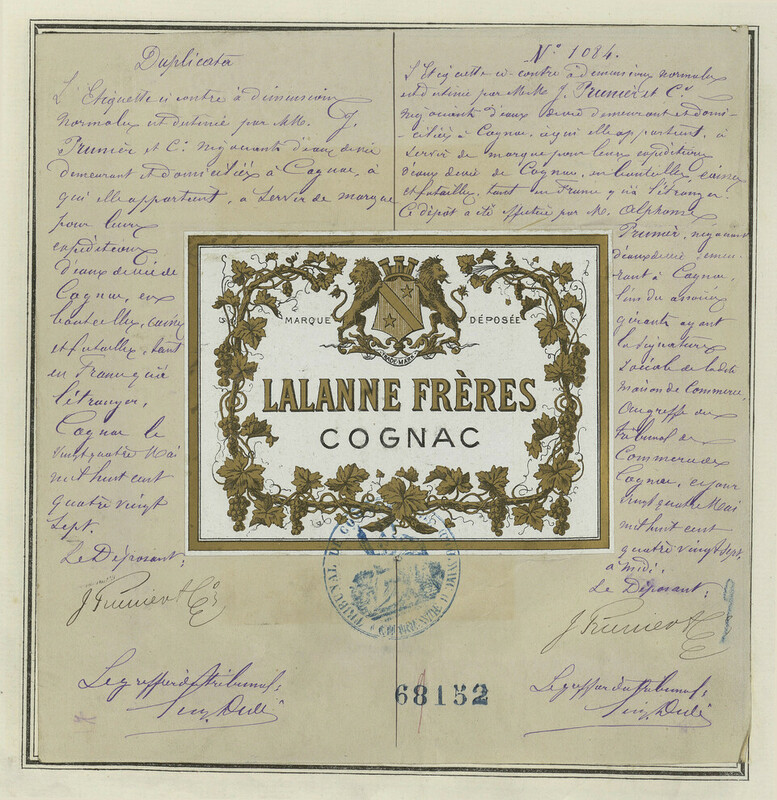 Duplicata
L'Etiquette ci contre à dimensions
normales est destinée par MM. J.
Prunier et Cie. négociants d'eaux de vie
demeurant et domiciliés à Cognac, à
qui elle appartient, à servir de marque
pour leurs
expéditions
d'eaux de vie de
Cognac, en
bouteilles, caisses
et futailles, tant
en France qu'à
l'étranger.
Cognac le
vingt quatre Mai
mil huit cent
quatre vingt
sept.
Le Déposant;
J Prunier & Cie
Le greffier du tribunal;
No 1084.
L'Etiquette ci-contre à dimensions normales
est destinée par MM. J. Prunier et Cie
négociants d'eaux de vie demeurant et domi-
-ciliés à Cognac, à qui elle appartient, à
servir de marque pour leurs expéditions
d'eaux de vie de Cognac, en bouteilles, caisses
et futailles, tant en France qu'à l'étranger.
Ce dépôt a été effectué par M. Alphonse
Prunier, négociant
d'eaux de vie demeu-
rant à Cognac,
l'un des associés
gérants ayant
la signature
sociale de la dite
maison de Commerce,
au greffe du
tribunal de
Commerce de
Cognac, ce jour
vingt quatre Mai
mil huit cent
quatre vingt sept,
à midi.
Le Déposant;
J Prunier & Cie
Le greffier du tribunal;
MARQUE DÉPOSÉE
TRADE-MARK
LALANNE FRÈRES
COGNAC
TRIBUNAL DE COMMERCE
68152